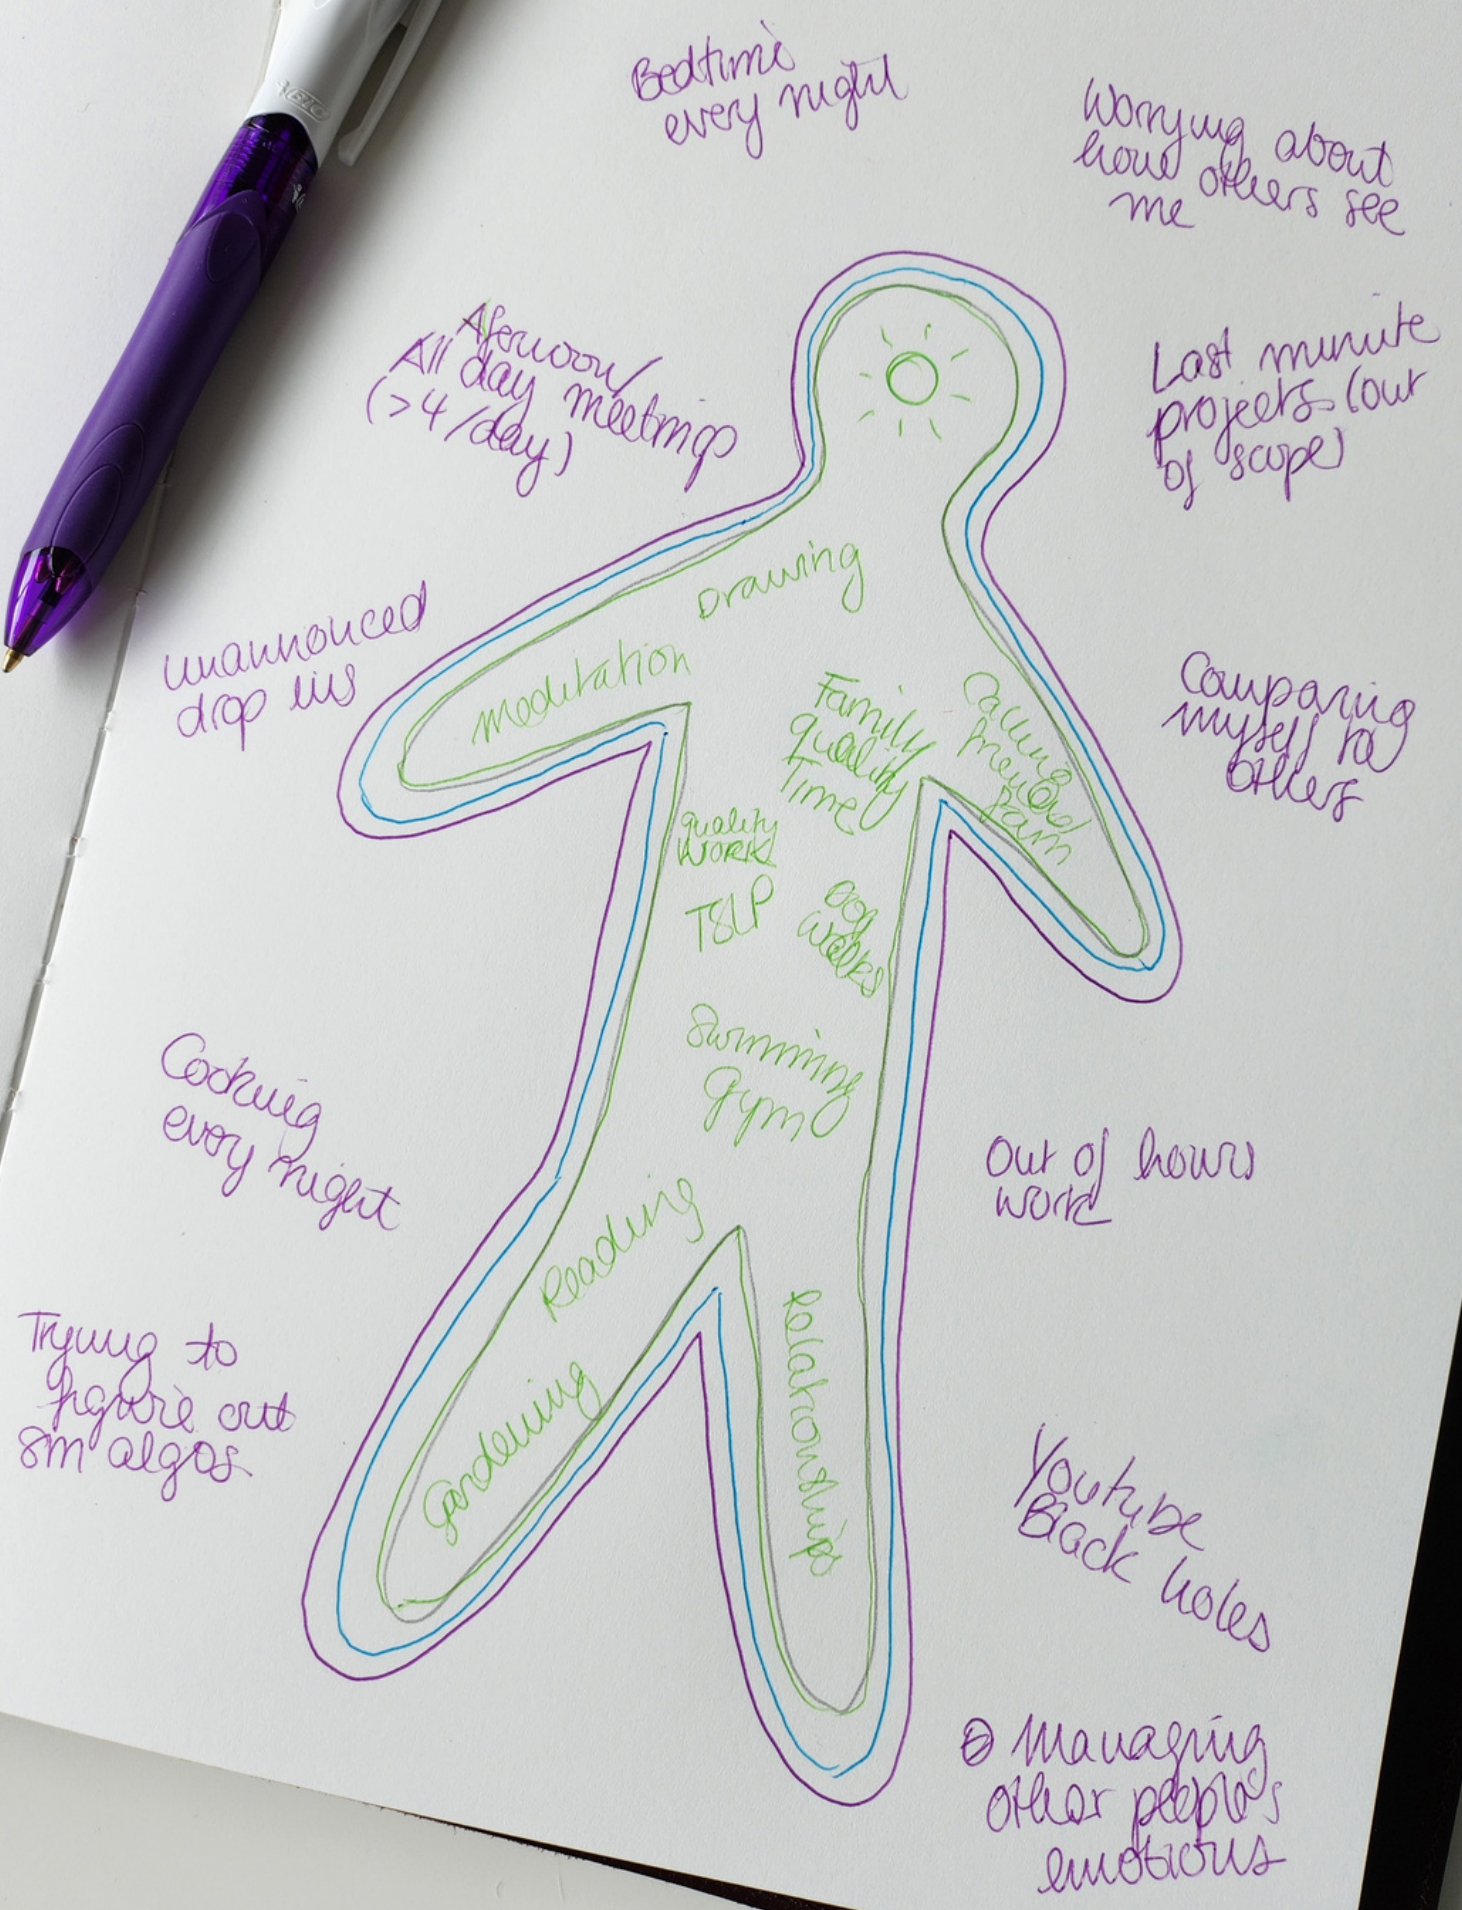 BIC
Bedtime
every night
Worrying about
how others see
me
Afernoon/
All day meetings
(>4/day)
Last minute
projects (out
of scope)
unannouced
drop ins
Comparing
myself to
others
Cooking
every night
Out of hours
work
Trying to
figure out
sm algos
Youtube
Black holes
Managing
other people's
emotions
Drawing
Meditation
Family
quality
Time
Calling
friends/
fam
quality
WORK
TSLP
dog
walks
Swimming
Gym
Reading
Gardening
Relationships